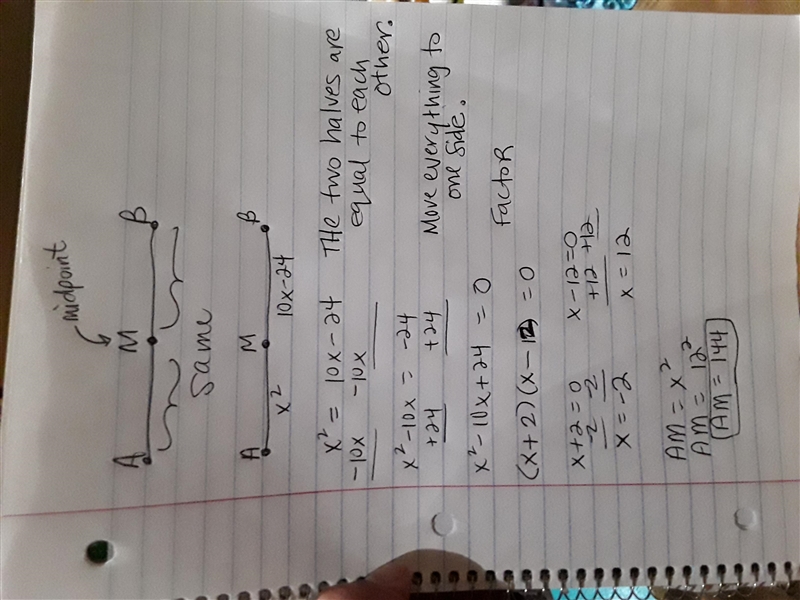 midpoint
A M B
Same
A M B
x² 10x-24
x² = 10x-24 The two halves are
-10x -10x equal to each
other.
x²-10x = -24 Move everything to
+24 +24 one side.
x²-10x+24 = 0 Factor
(x+2)(x-12) = 0
x+2=0 x-12=0
-2 -2 +12 +12
x=-2 x=12
AM = x²
AM = 12²
AM = 144